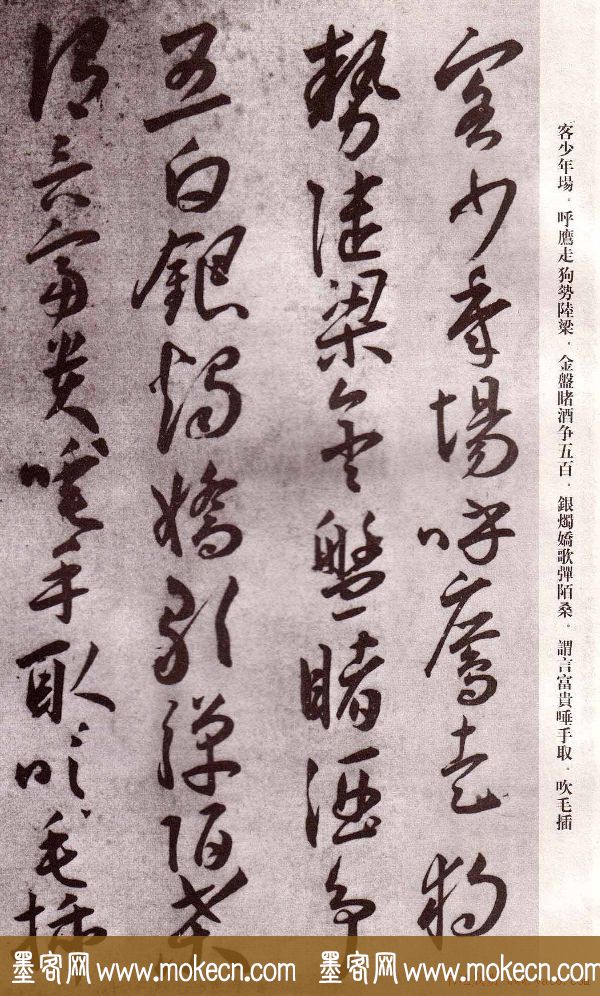 客少年場。呼鷹走狗勢陸梁。金盤睹酒争五百。銀燭嬌歌彈陌桑。謂言富貴唾手取。吹毛插
客少年場呼鷹走狗
勢陸梁金盤睹酒争
五白銀燭嬌歌彈陌桑
謂言富貴唾手取吹毛插
墨客网 www.mokecn.com 墨客网 www.mokecn.com